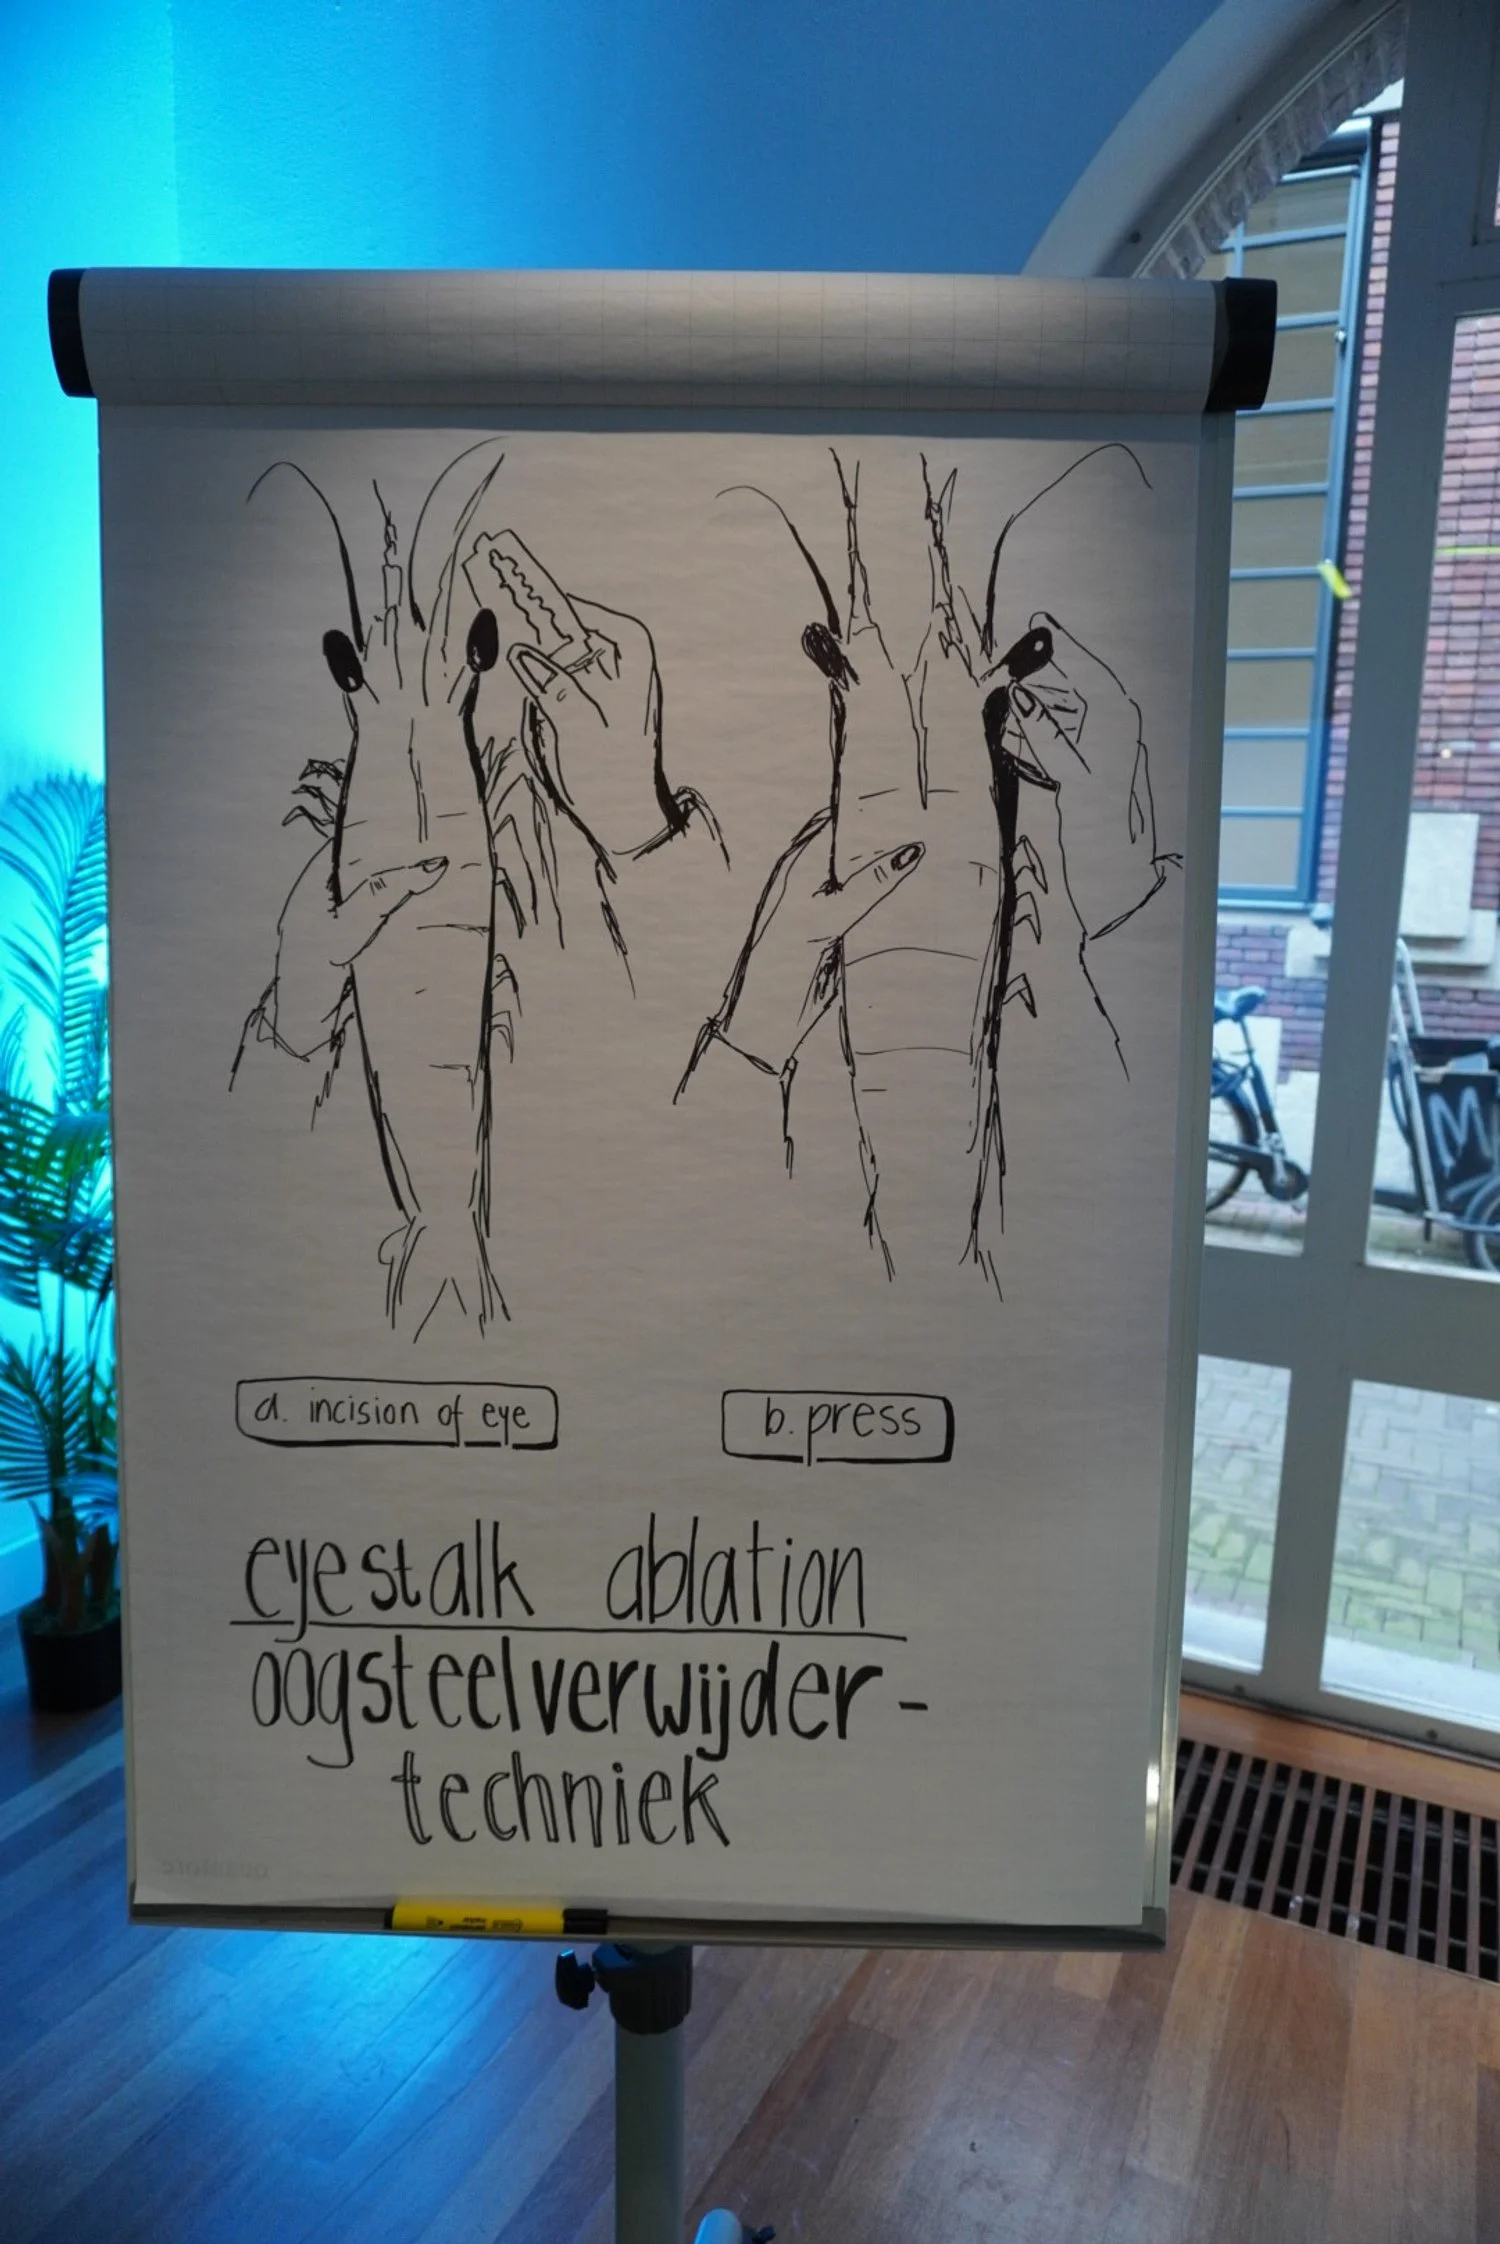 a. incision of eye
b. press
eyestalk ablation
oogsteelverwijder-
techniek